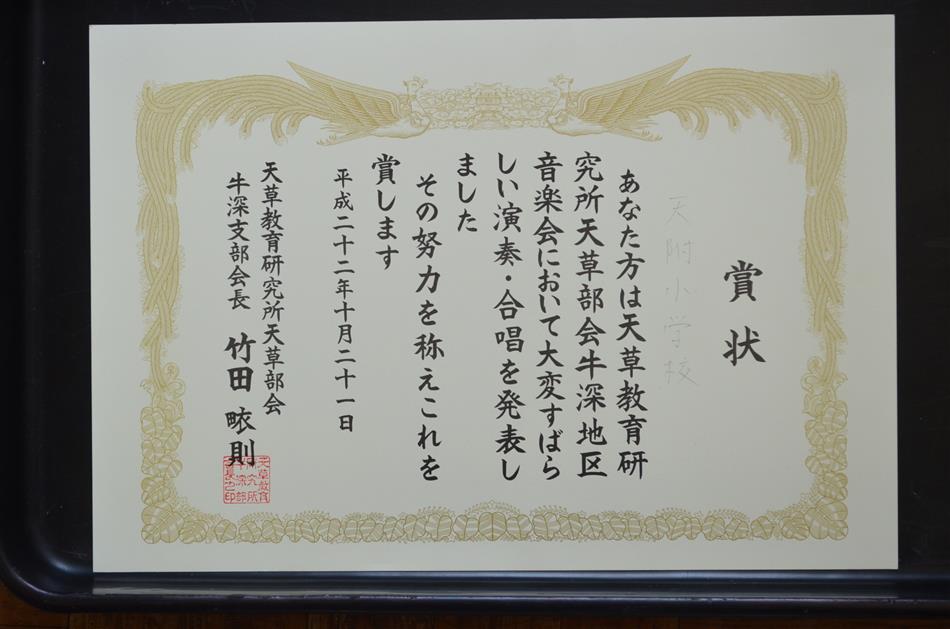 賞状
天附小学校
あなた方は天草教育研
究所天草部会牛深地区
音楽会において大変すばら
しい演奏・合唱を発表し
ました
その努力を称えこれを
賞します
平成二十二年十月二十一日
天草教育研究所天草部会
牛深支部会長 竹田 畩則